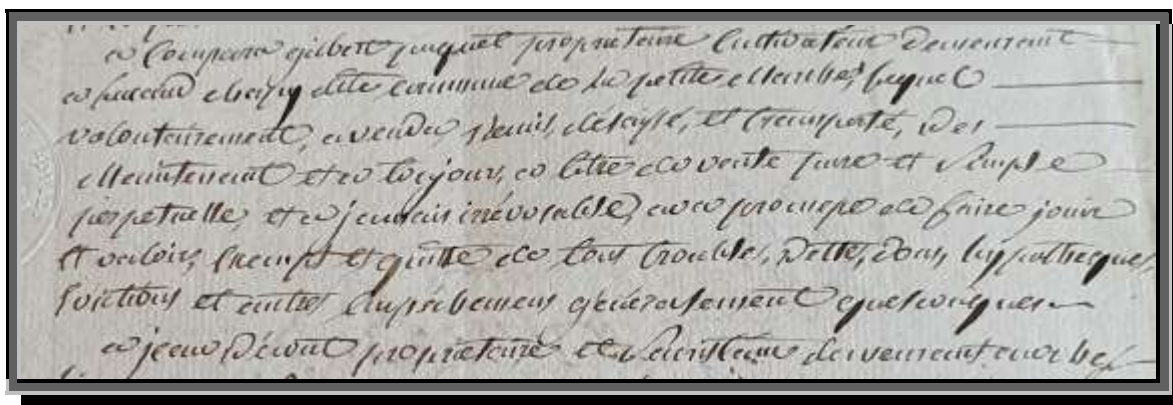 a Comparu gilbert puquet proprietaire Cultivateur demeurant
a dite commune de la petite Marche, lequel
volontairement, a vendu, remis, désaisÿ, et transporté, des
Maintenant et a toujours, a titre de vente pure et simple
perpetuelle, et a jamais irrévocable, avec promesse de faire jouir
et valoir, Exempt et quitte de tous troubles, Dette, Dons, hypotheques,
Evictions et autres Empêchemens généralement quelconques
a jean proprietaire et demeurant aux